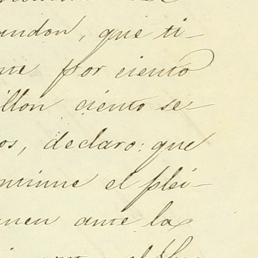 undon, que ti-
me por ciento
illon ciento se
os, declaro: que
ontinue el plei-
nen ante la